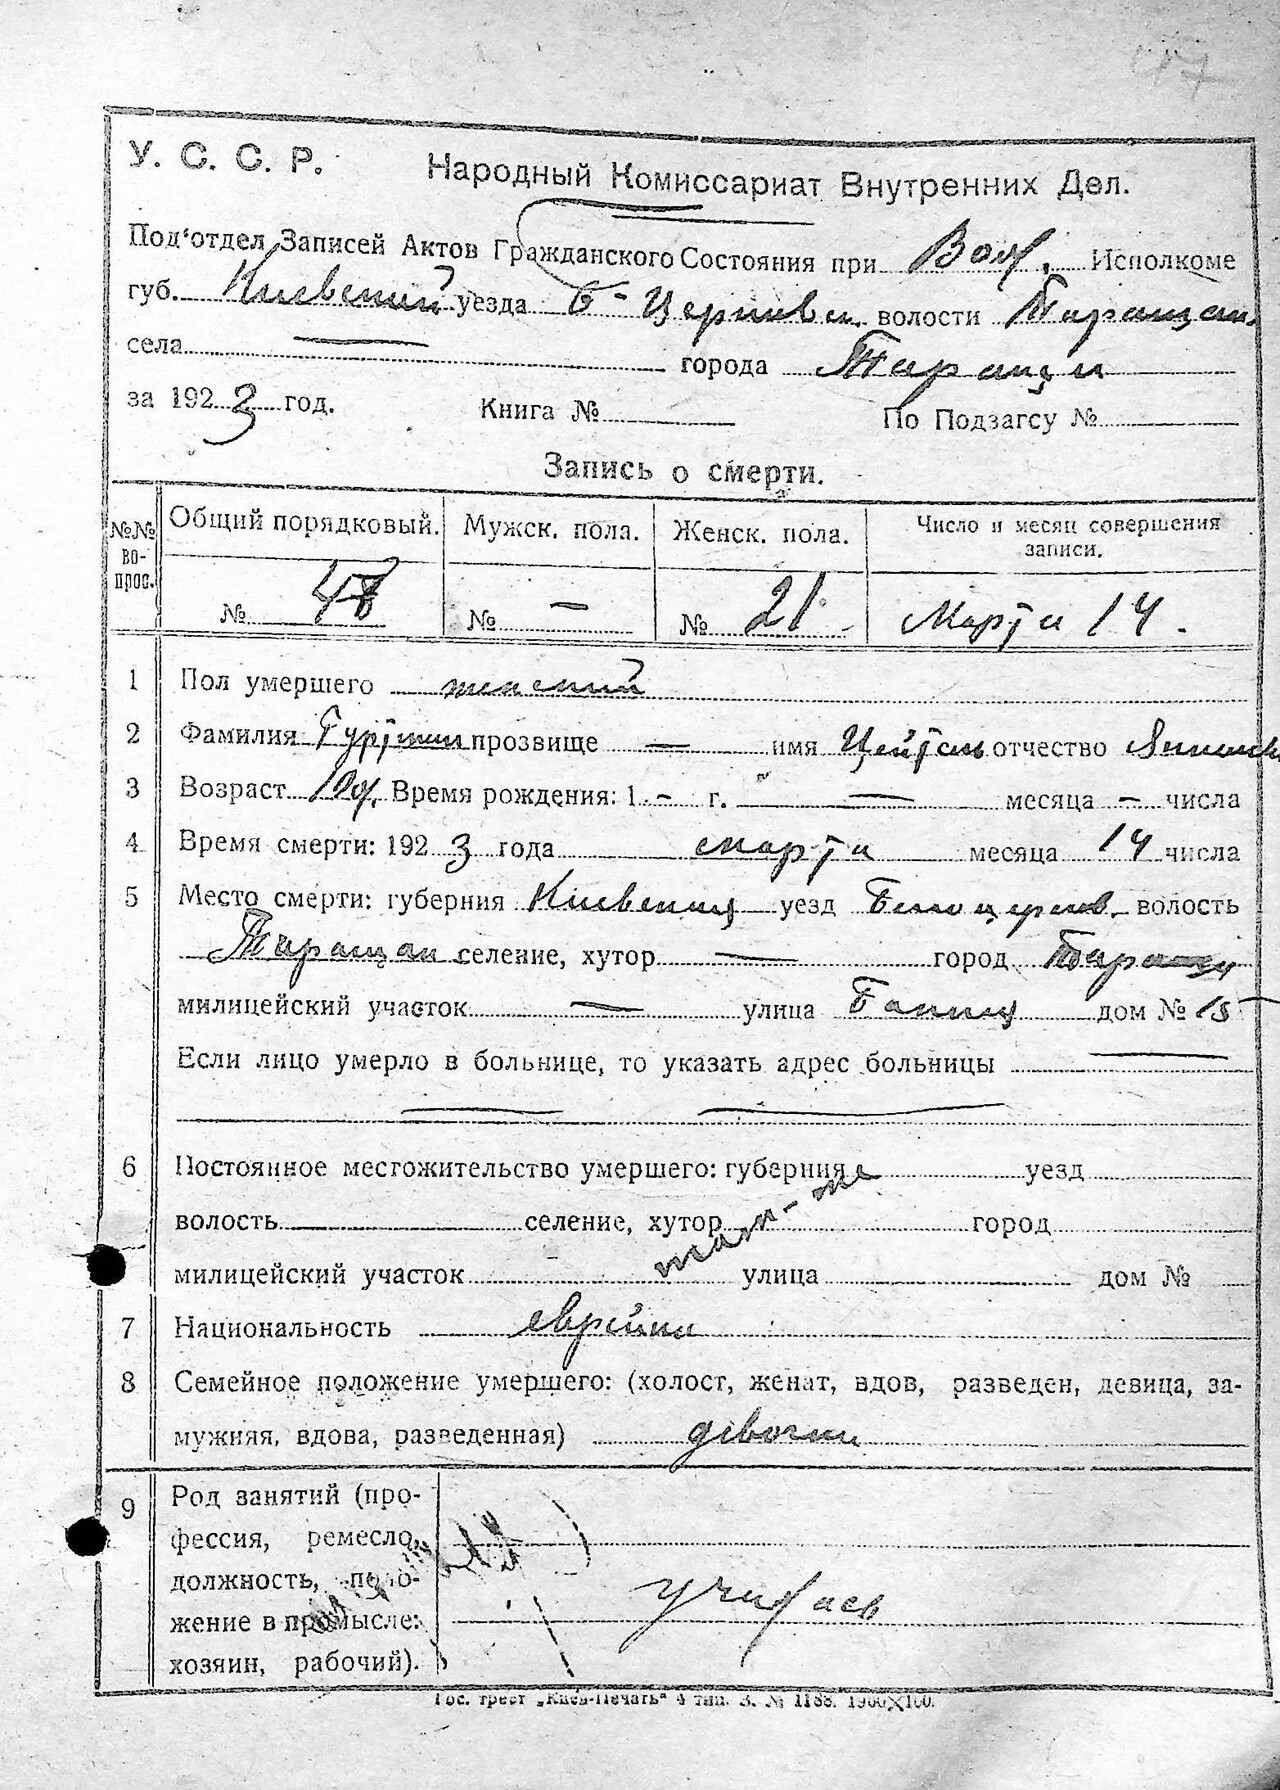 У. С. С. Р. Народный Комиссариат Внутренних Дел.
Под‘отдел Записей Актов Гражданского Состояния при Вол. Исполкоме
губ. Киевский уезда Б-Церковск. волости Таращан.
села — города Таращи
за 1923 год. Книга № По Подзагсу №
Запись о смерти.
№№ во-прос. Общий порядковый. Мужск. пола. Женск. пола. Число и месяц совершения записи.
№ № — № 21 Марта 14.
1 Пол умершего женский
2 Фамилия прозвище — имя Цейтель отчество
3 Возраст Время рождения: 1 – г. — месяца – числа
4 Время смерти: 1923 года марта месяца 14 числа
5 Место смерти: губерния Киевская уезд Белоцерков. волость
Таращан селение, хутор — город Тараща
милицейский участок — улица дом № 15
Если лицо умерло в больнице, то указать адрес больницы —
— —
6 Постоянное местожительство умершего: губерния уезд
волость селение, хутор там-же город
милицейский участок улица дом №
7 Национальность еврейка
8 Семейное положение умершего: (холост, женат, вдов, разведен, девица, за-
мужняя, вдова, разведенная) девочка
9 Род занятий (про-
фессия, ремесло,
должность, поло-
жение в промысле: учащаяся
хозяин, рабочий).
Гос. трест „Киев-Печать“ 4 тип. З. № 1188. 1900×100.